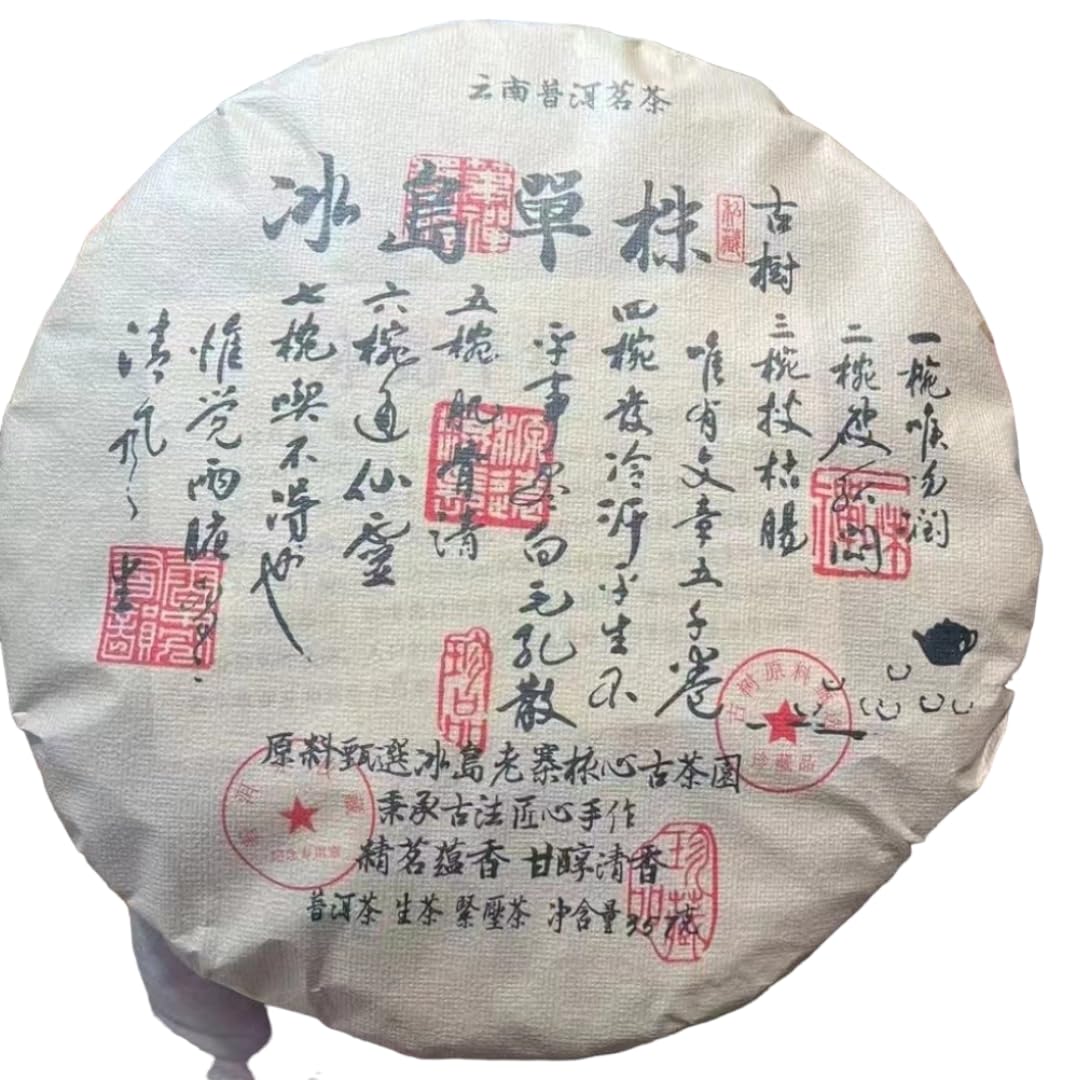 云南普洱茗茶
冰島單株
古樹
私藏
一椀喉吻潤
二椀破孤悶
三椀搜枯腸
唯有文章五千卷
四椀发冷汗 平生不
平事 尽向毛孔散
五椀肌骨清
六椀通仙靈
七椀喫不得也
惟觉両腋習习
清风
珍品
古樹原料
珍藏品
原料甄選冰島老寨核心古茶園
秉承古法匠心手作
精茗蕴香 甘醇清香
普洱茶 生茶 緊壓茶 净含量357克
珍藏品